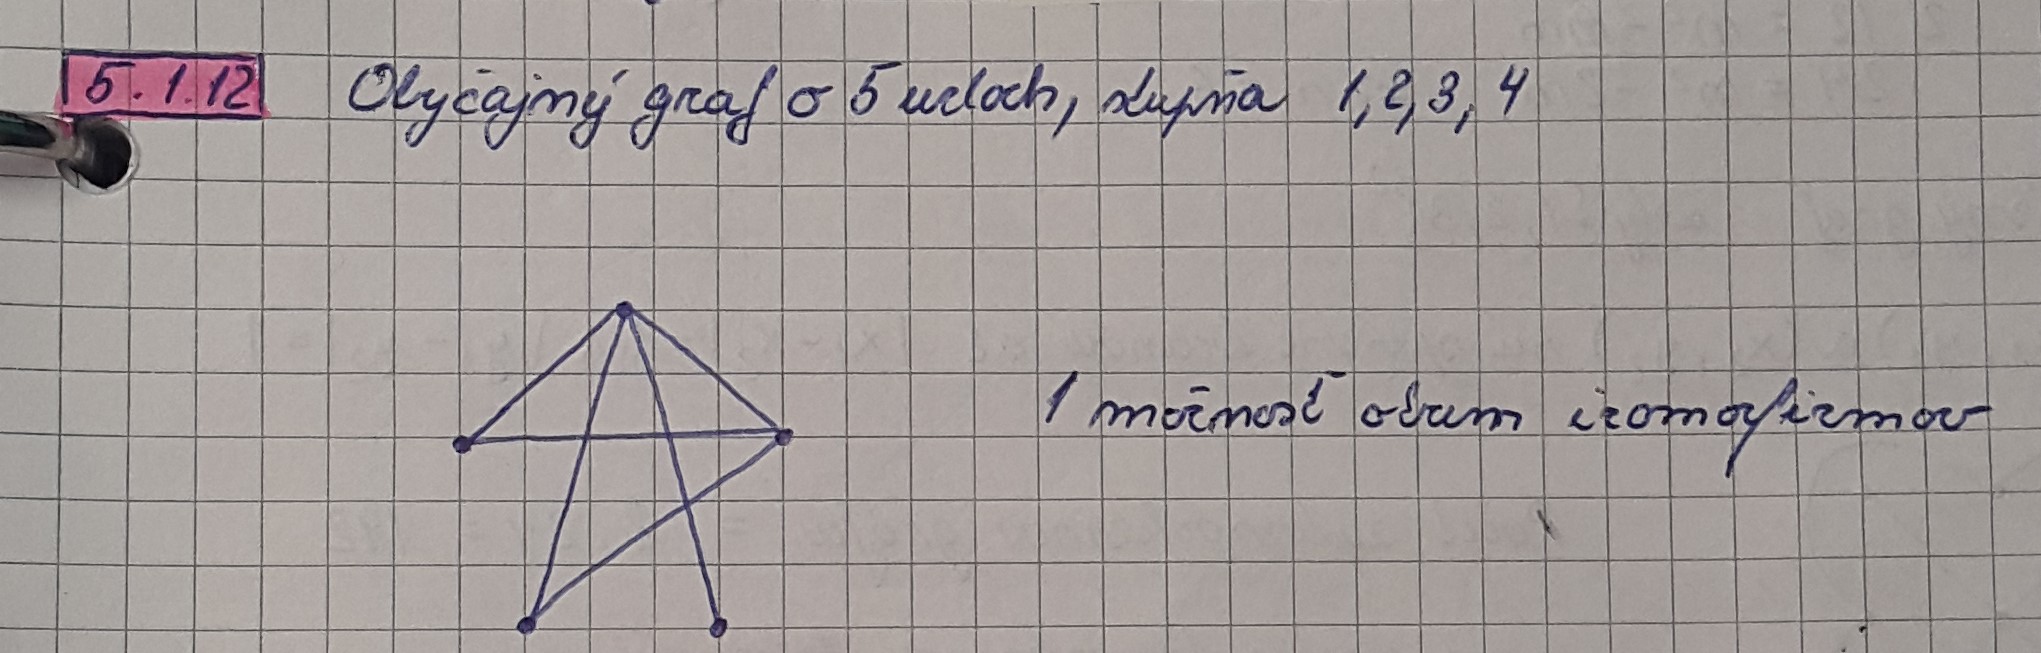 5.1.12 Obyčajný graf o 5 uzloch, stupňa 1,2,3,4
1 možnosť okrem izomorfizmov